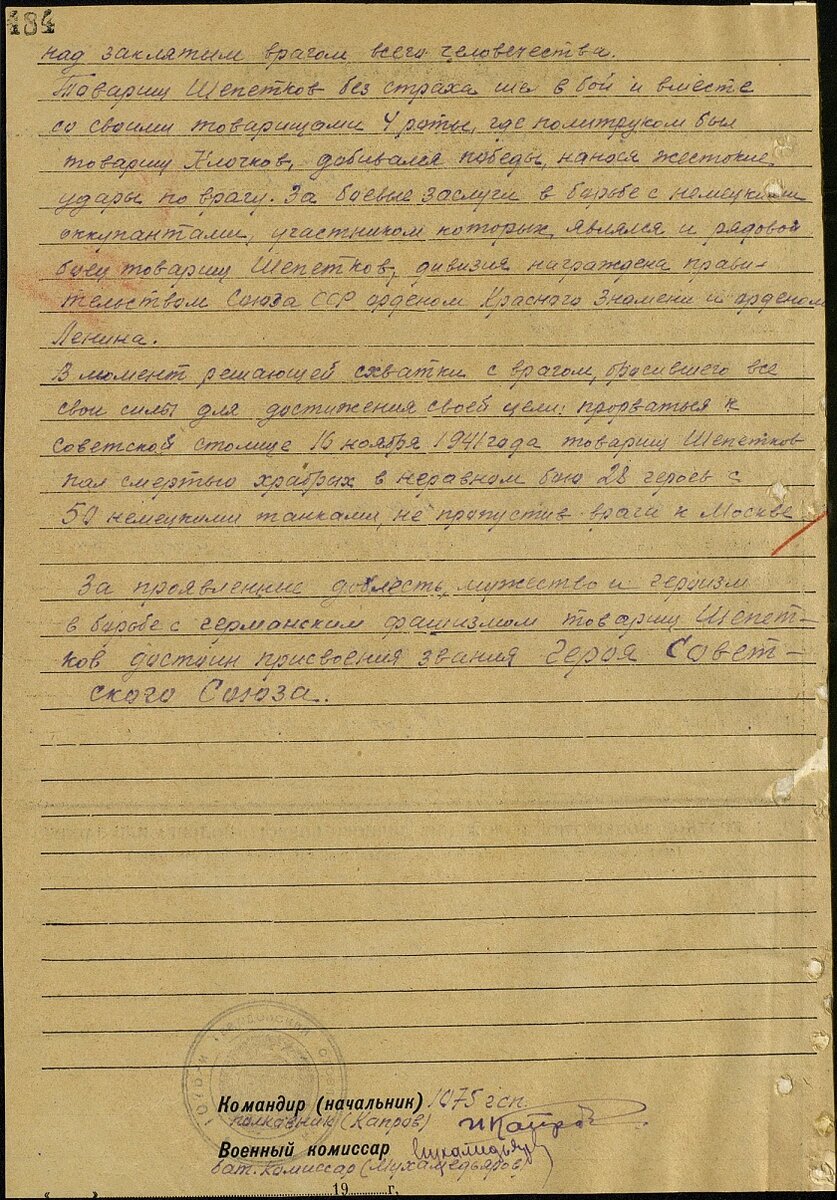 484
над заклятым врагом всего человечества.
Товарищ Шепетков без страха шел в бой и вместе
со своими товарищами 4 роты, где политруком был
товарищ Клочков, добивался победы, нанося жестокие
удары по врагу. За боевые заслуги в борьбе с немецкими
оккупантами, участником которых являлся и рядовой
боец товарищ Шепетков, дивизия награждена прави-
тельством Союза ССР орденом Красного Знамени и орденом
Ленина.
В момент решающей схватки с врагом, бросившего все
свои силы для достижения своей цели: прорваться к
советской столице 16 ноября 1941 года товарищ Шепетков
пал смертью храбрых в неравном бою 28 героев с
50 немецкими танками, не пропустив врага к Москве
За проявленные доблесть, мужество и героизм
в борьбе с германским фашизмом товарищ Шепет-
ков достоин присвоения звания Героя Совет-
ского Союза.
Командир (начальник) 1075 гсп
полковник (Капров)
Военный комиссар
бат. комиссар (Мухамедьяров)
19 г.